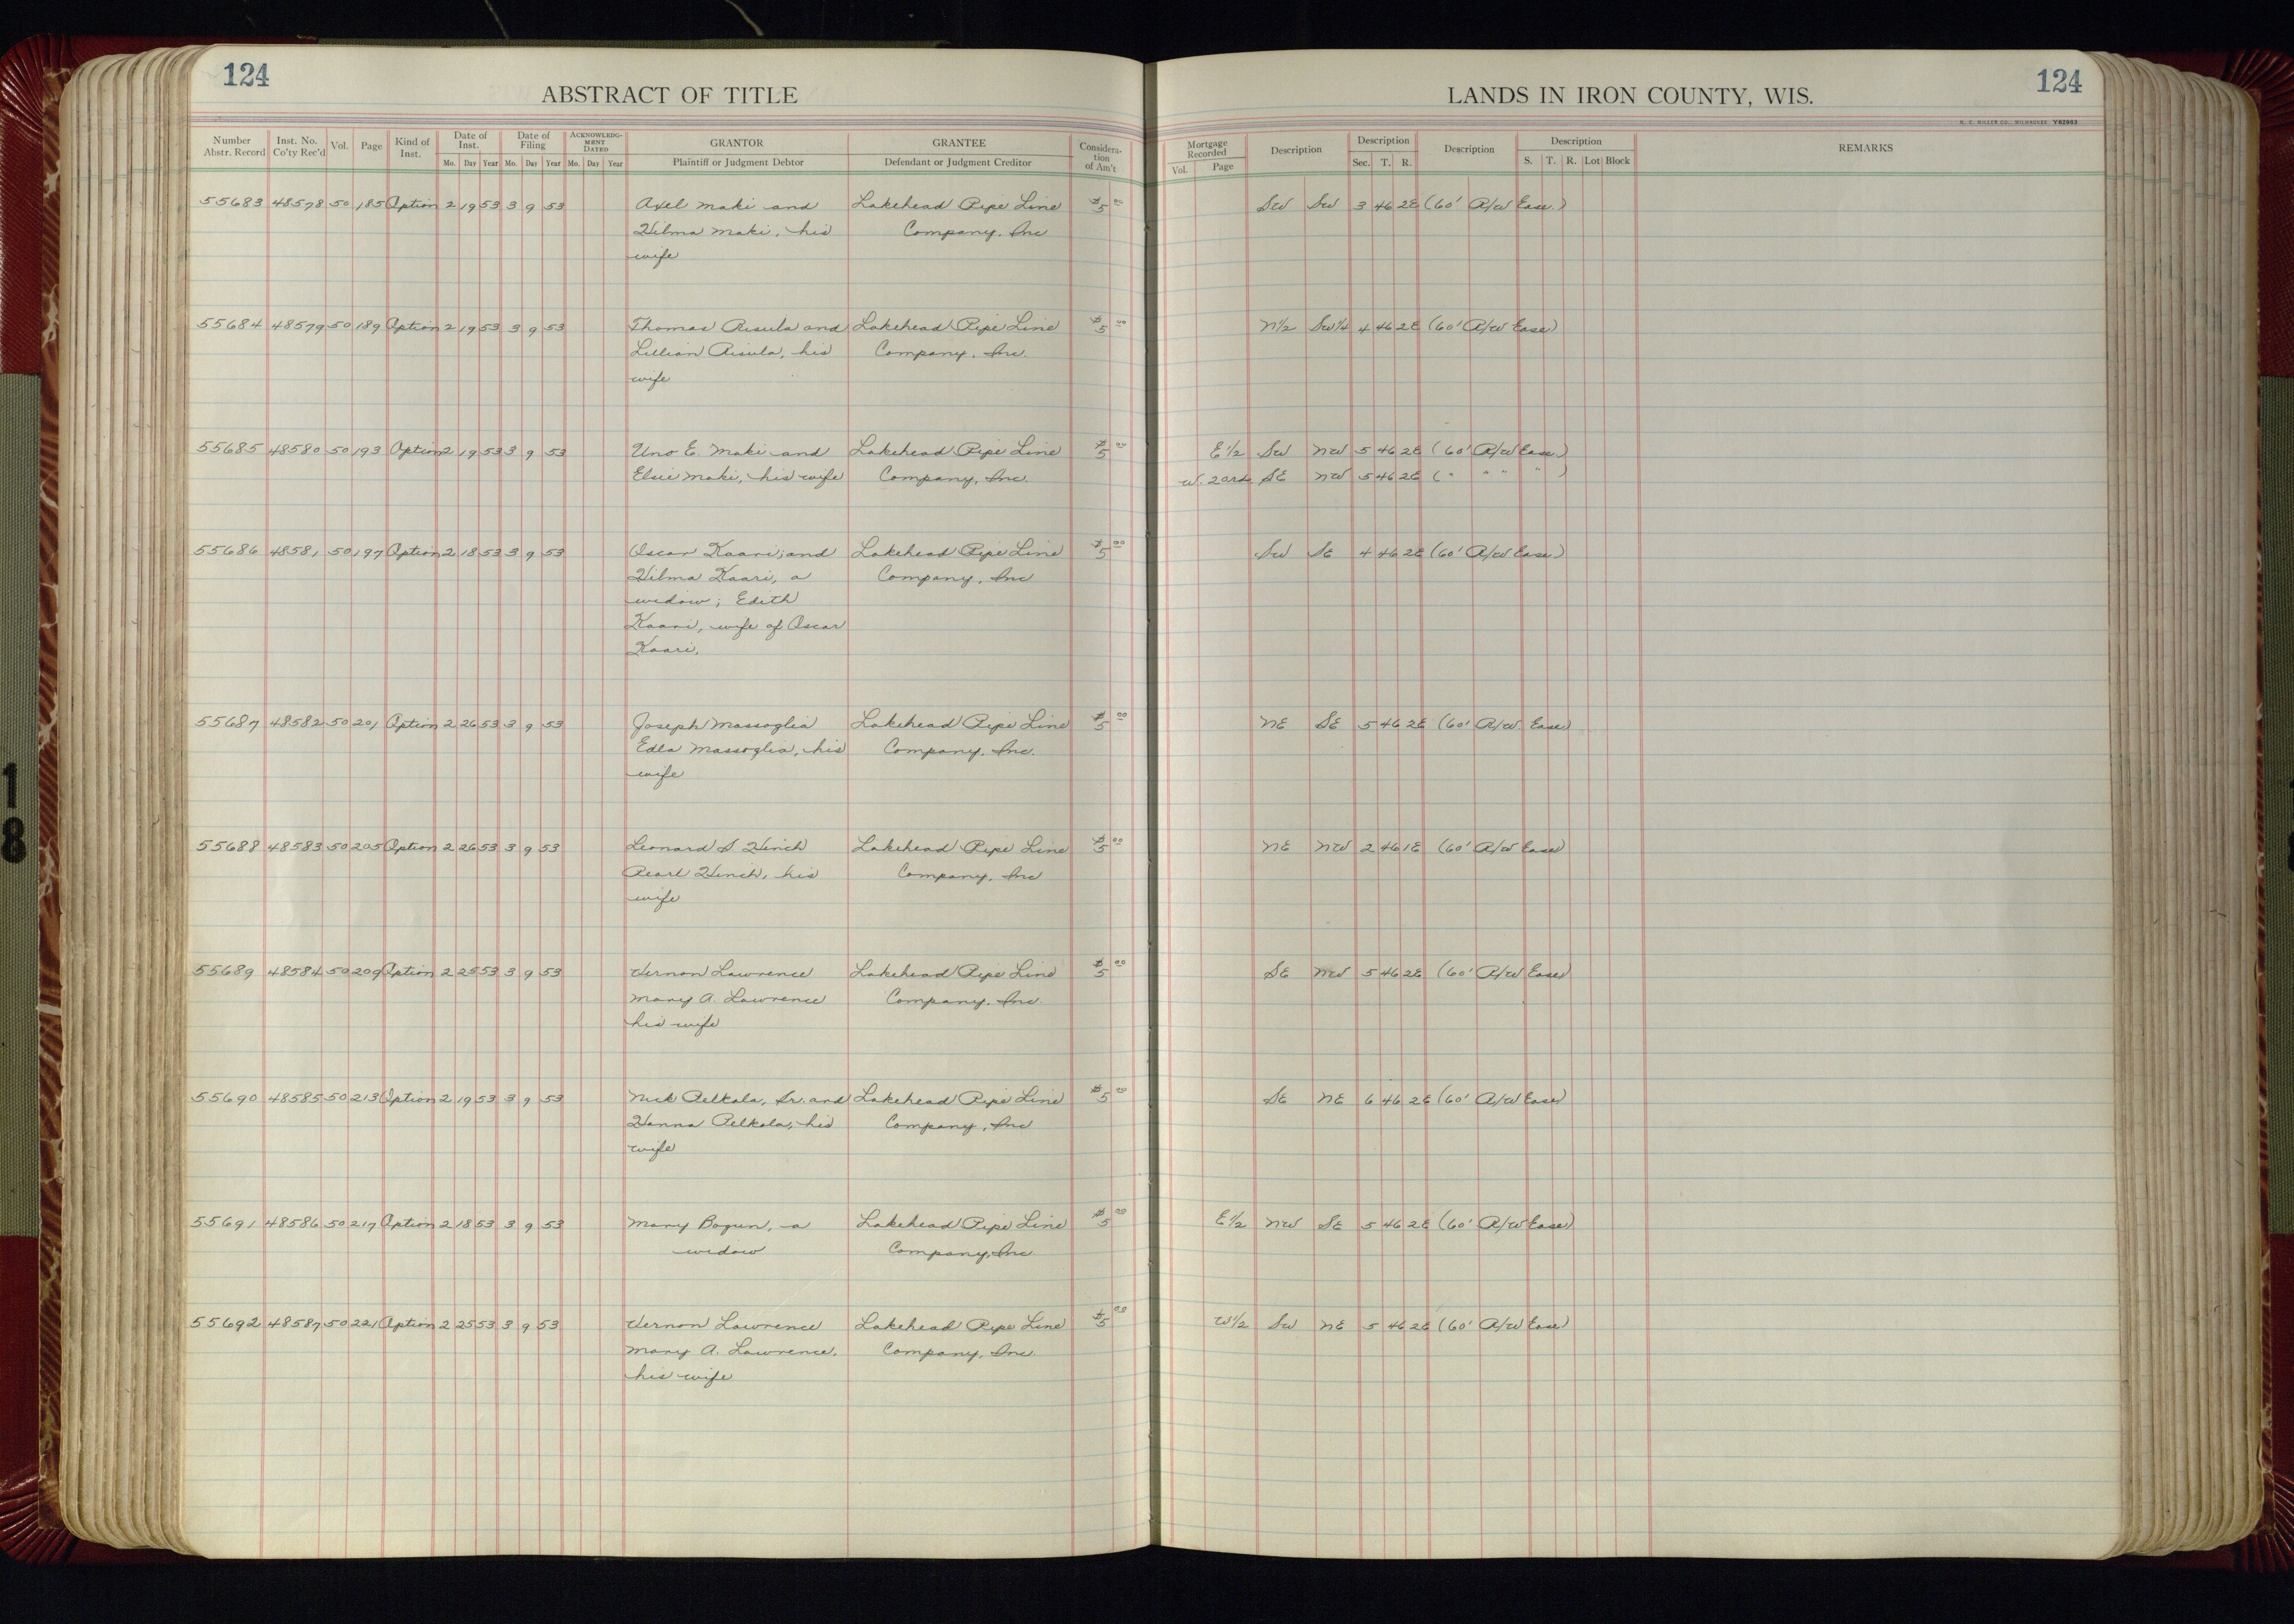 124
ABSTRACT OF TITLE
LANDS IN IRON COUNTY, WIS.
124
H. C. MILLER CO., MILWAUKEE Y62963
Number Abstr. Record Inst. No. Co'ty Rec'd Vol. Page Kind of Inst. Date of Inst. Mo. Day Year Date of Filing Mo. Day Year ACKNOWLEDGMENT DATED Mo. Day Year GRANTOR Plaintiff or Judgment Debtor GRANTEE Defendant or Judgment Creditor Consideration of Am't Mortgage Recorded Vol. Page Description Description Sec. T. R. Description Description S. T. R. Lot Block REMARKS
55683 48578 50 185 Option 2 19 53 3 9 53 Axel Maki and Lakehead Pipe Line $5 00 SW SW 3 46 2E (60' R/W Ease.)
Hilma Maki, his Company, Inc
wife
55684 48579 50 189 Option 2 19 53 3 9 53 Thomas Risula and Lakehead Pipe Line $5 00 N1/2 SW1/4 4 46 2E (60' R/W Ease)
Lillian Risula, his Company, Inc.
wife
55685 48580 50 193 Option 2 19 53 3 9 53 Uno E. Maki and Lakehead Pipe Line $5 00 E1/2 SW NW 5 46 2E (60' R/W Ease.)
Elsie Maki, his wife Company, Inc. W. 2 SE NW 5 46 2E ( " " " " )
55686 48581 50 197 Option 2 18 53 3 9 53 Oscar Kaari; and Lakehead Pipe Line $5 00 SW SE 4 46 2E (60' R/W Ease.)
Hilma Kaari, a Company, Inc
widow; Edith
Kaari, wife of Oscar
Kaari.
55687 48582 50 201 Option 2 26 53 3 9 53 Joseph Massoglia Lakehead Pipe Line $5 00 NE SE 5 46 2E (60' R/W. Ease)
Edla Massoglia, his Company, Inc.
wife
55688 48583 50 205 Option 2 26 53 3 9 53 Leonard S. Hinch Lakehead Pipe Line $5 00 NE NW 2 46 1E (60' R/W Ease)
Pearl Hinch, his Company, Inc
wife
55689 48584 50 209 Option 2 25 53 3 9 53 Vernon Lawrence Lakehead Pipe Line $5 00 SE NW 5 46 2E (60' R/W Ease)
Mary A. Lawrence Company, Inc.
his wife
55690 48585 50 213 Option 2 19 53 3 9 53 Nick Pelkola, Sr. and Lakehead Pipe Line $5 00 SE NE 6 46 2E (60' R/W Ease)
Hanna Pelkola, his Company, Inc
wife
55691 48586 50 217 Option 2 18 53 3 9 53 Mary Bogun, a Lakehead Pipe Line $5 00 E1/2 NW SE 5 46 2E (60' R/W Ease)
widow Company, Inc
55692 48587 50 221 Option 2 25 53 3 9 53 Vernon Lawrence Lakehead Pipe Line $5 00 W1/2 SW NE 5 46 2E (60' R/W Ease)
Mary A. Lawrence, Company, Inc.
his wife
18